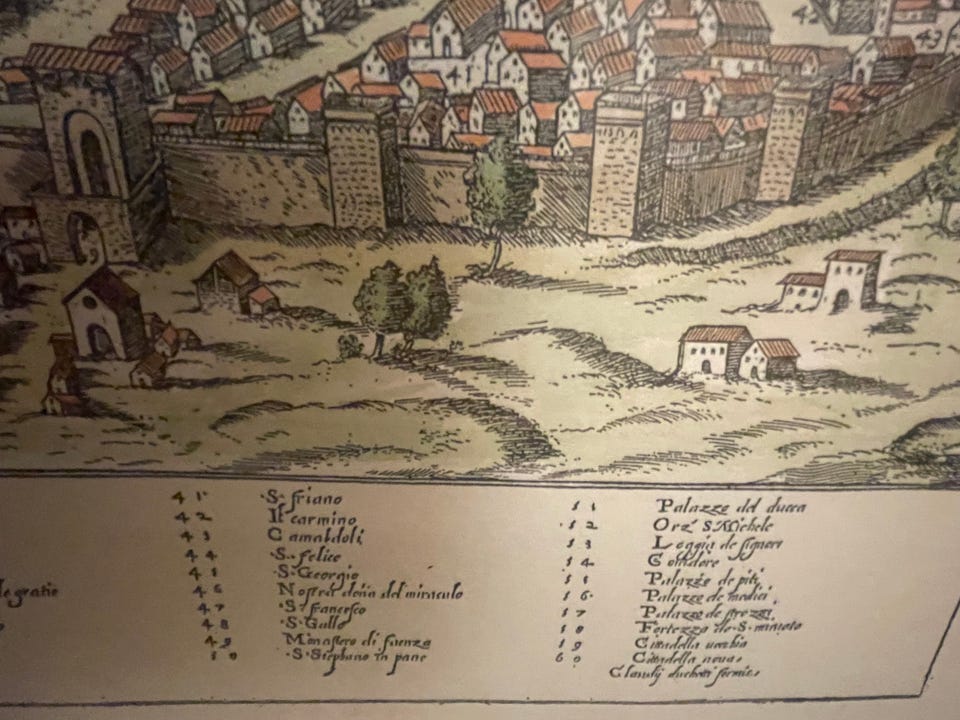 42
43
41
41 S. friano
42 Il carmino
43 Camaldoli
44 S. felice
45 S. Georgio
le gratie 46 Nostra dona del miraculo
47 S. francesco
48 S. Gallo
49 Monastero di faenza
50 S. Stephano in pane
51 Palazzo del ducca
52 Orz' S. Michele
53 Loggia de signori
54 Coridore
55 Palazzo de piti
56 Palazzo de medici
57 Palazzo de strozzi
58 Fortezza de S. miniato
59 Cittadella vechia
60 Cittadella nova
Claudij duchetti formis